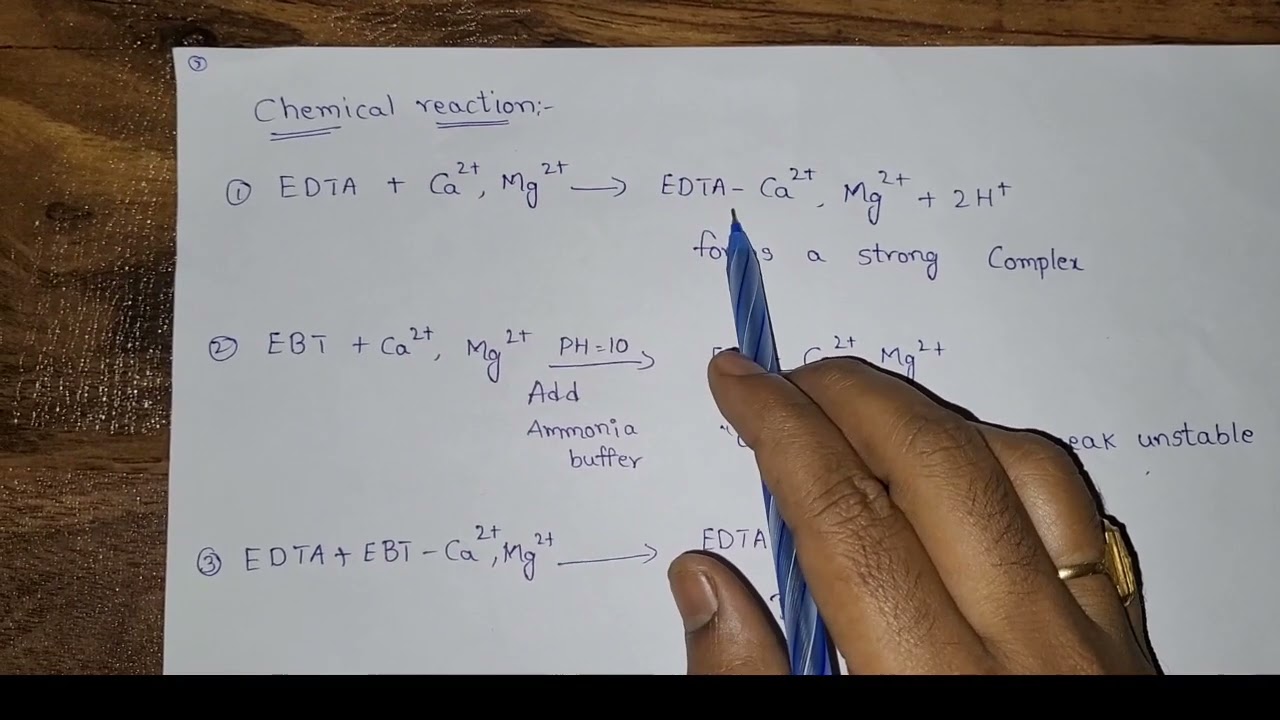 ③
Chemical reaction:-
① EDTA + Ca²⁺, Mg²⁺ → EDTA - Ca²⁺, Mg²⁺ + 2H⁺
a strong Complex
② EBT + Ca²⁺, Mg²⁺ PH=10 → Mg²⁺
Add
Ammonia unstable
buffer
③ EDTA + EBT - Ca²⁺, Mg²⁺ → EDTA